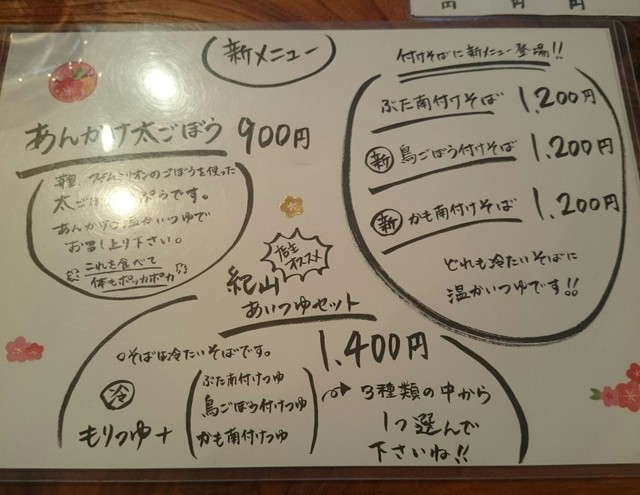 円 円 円
新メニュー
あんかけ太ごぼう 900円
ファームミリオンのごぼうを使った
太ごぼう
あんかけの温かいつゆで
お召し上り下さい。
これを食べて
体もポッカポカ
付けそばに新メニュー登場!!
ぶた南付けそば 1,200円
新 鳥ごぼう付けそば 1,200円
新 かも南付けそば 1,200円
どれも冷たいそばに
温かいつゆです!!
店主
オススメ
紀山
あいつゆセット
1,400円
○そばは冷たいそばです。
冷
もりつゆ+
ぶた南付けつゆ
鳥ごぼう付けつゆ
かも南付けつゆ
3種類の中から
1つ選んで
下さいね!!